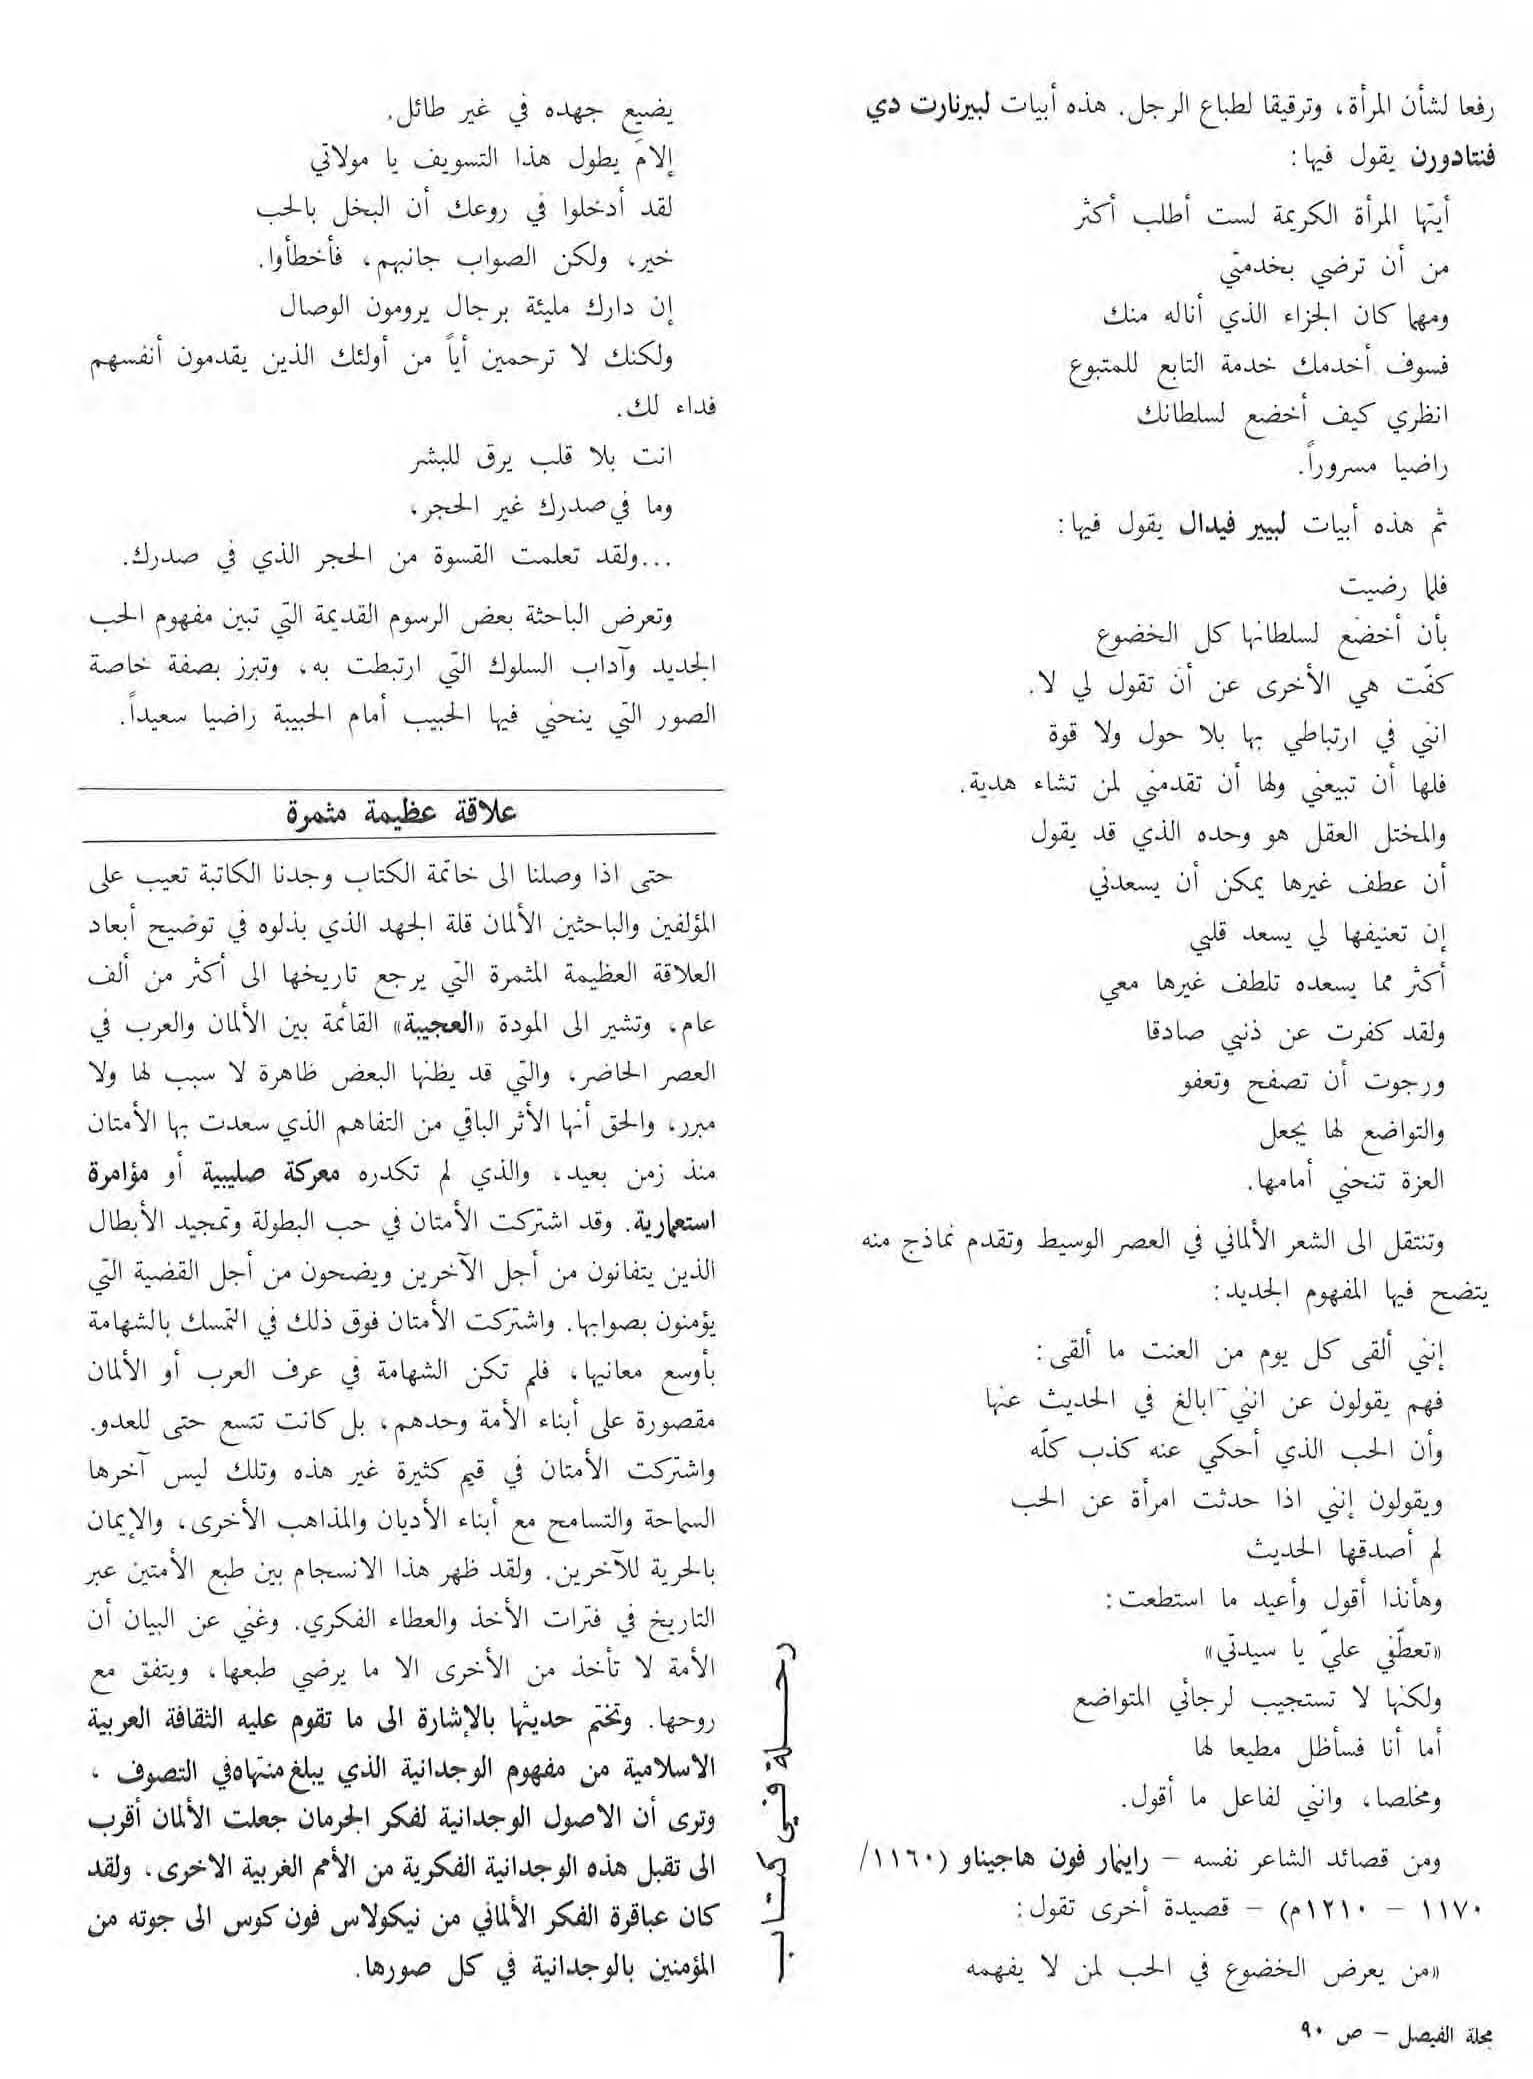 رفعا لشأن المرأة، وترقيقا لطباع الرجل. هذه أبيات لبيرنارت دي
فنتادورن يقول فيها:
أيتها المرأة الكريمة لست أطلب أكثر
من أن ترضي بخدمتي
ومهما كان الجزاء الذي أناله منك
فسوف أخدمك خدمة التابع للمتبوع
انظري كيف أخضع لسلطانك
راضيا مسروراً.
ثم هذه أبيات لبيير فيدال يقول فيها:
فلما رضيت
بأن أخضع لسلطانها كل الخضوع
كفّت هي الأخرى عن أن تقول لي لا.
انني في ارتباطي بها بلا حول ولا قوة
فلها أن تبيعني ولها أن تقدمني لمن تشاء هدية.
والمختل العقل هو وحده الذي قد يقول
أن عطف غيرها يمكن أن يسعدني
إن تعنيفها لي يسعد قلبي
أكثر مما يسعده تلطف غيرها معي
ولقد كفرت عن ذنبي صادقا
ورجوت أن تصفح وتعفو
والتواضع لها يجعل
العزة تنحني أمامها.
وتنتقل الى الشعر الألماني في العصر الوسيط وتقدم نماذج منه
يتضح فيها المفهوم الجديد:
إنني ألقى كل يوم من العنت ما ألقى:
فهم يقولون عن انني ابالغ في الحديث عنها
وأن الحب الذي أحكي عنه كذب كلّه
ويقولون إنني اذا حدثت امرأة عن الحب
لم أصدقها الحديث
وهأنذا أقول وأعيد ما استطعت:
«تعطّفي عليّ يا سيدتي»
ولكنها لا تستجيب لرجائي المتواضع
أما أنا فسأظل مطيعا لها
ومخلصا، وانني لفاعل ما أقول.
ومن قصائد الشاعر نفسه – راينمار فون هاجيناو (١١٦٠/
١١٧٠ – ١٢١٠م) – قصيدة أخرى تقول:
«من يعرض الخضوع في الحب لمن لا يفهمه
يضيع جهده في غير طائل.
إلامَ يطول هذا التسويف يا مولاتي
لقد أدخلوا في روعك أن البخل بالحب
خير، ولكن الصواب جانبهم، فأخطأوا.
إن دارك مليئة برجال يرومون الوصال
ولكنك لا ترحمين أياً من أولئك الذين يقدمون أنفسهم
فداء لك.
انت بلا قلب يرق للبشر
وما في صدرك غير الحجر،
...ولقد تعلمت القسوة من الحجر الذي في صدرك.
وتعرض الباحثة بعض الرسوم القديمة التي تبين مفهوم الحب
الجديد وآداب السلوك التي ارتبطت به، وتبرز بصفة خاصة
الصور التي ينحني فيها الحبيب أمام الحبيبة راضيا سعيداً.
علاقة عظيمة مثمرة
حتى اذا وصلنا الى خاتمة الكتاب وجدنا الكاتبة تعيب على
المؤلفين والباحثين الألمان قلة الجهد الذي بذلوه في توضيح أبعاد
العلاقة العظيمة المثمرة التي يرجع تاريخها الى أكثر من ألف
عام، وتشير الى المودة «العجيبة» القائمة بين الألمان والعرب في
العصر الحاضر، والتي قد يظنها البعض ظاهرة لا سبب لها ولا
مبرر، والحق أنها الأثر الباقي من التفاهم الذي سعدت بها الأمتان
منذ زمن بعيد، والذي لم تكدره معركة صليبية أو مؤامرة
استعمارية. وقد اشتركت الأمتان في حب البطولة وتمجيد الأبطال
الذين يتفانون من أجل الآخرين ويضحون من أجل القضية التي
يؤمنون بصوابها. واشتركت الأمتان فوق ذلك في التمسك بالشهامة
بأوسع معانيها، فلم تكن الشهامة في عرف العرب أو الألمان
مقصورة على أبناء الأمة وحدهم، بل كانت تتسع حتى للعدو.
واشتركت الأمتان في قيم كثيرة غير هذه وتلك ليس آخرها
السماحة والتسامح مع أبناء الأديان والمذاهب الأخرى، والإيمان
بالحرية للآخرين. ولقد ظهر هذا الانسجام بين طبع الأمتين عبر
التاريخ في فترات الأخذ والعطاء الفكري. وغني عن البيان أن
الأمة لا تأخذ من الأخرى الا ما يرضي طبعها، ويتفق مع
روحها. وتختم حديثها بالإشارة الى ما تقوم عليه الثقافة العربية
الاسلامية من مفهوم الوجدانية الذي يبلغ منتهاه في التصوف ،
وترى أن الاصول الوجدانية لفكر الجرمان جعلت الألمان أقرب
الى تقبل هذه الوجدانية الفكرية من الأمم الغربية الاخرى، ولقد
كان عباقرة الفكر الألماني من نيكولاس فون كوس الى جوته من
المؤمنين بالوجدانية في كل صورها.
رحلة في كتاب
مجلة الفيصل – ص ٩٠